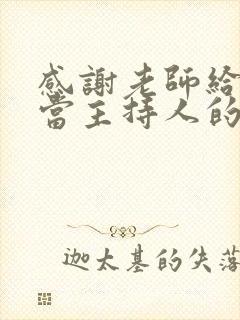 感謝老師給
當主持人的
迦太基的失落